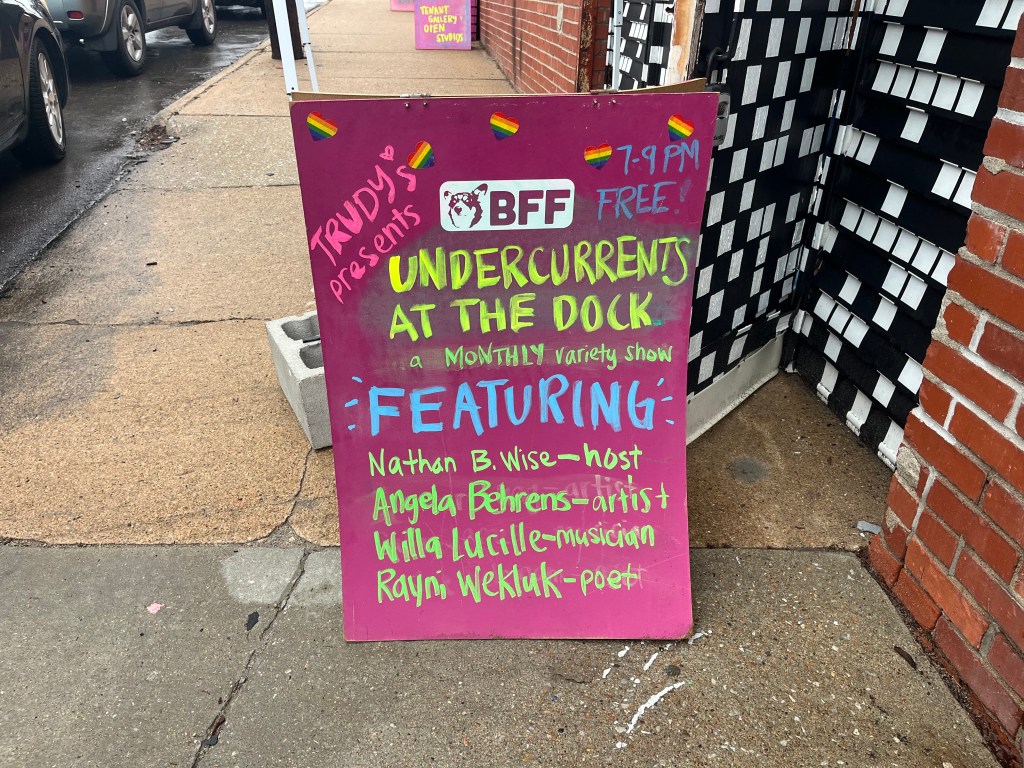 TENANT
GALLERY &
OPEN
STUDIOS
TRUDY's
presents
BFF
7-9 PM
FREE!
UNDERCURRENTS
AT THE DOCK
a MONTHLY variety show
FEATURING
Nathan B. Wise—host
Angela Behrens—artist
Willa Lucille-musician
Rayni Wekluk-poet